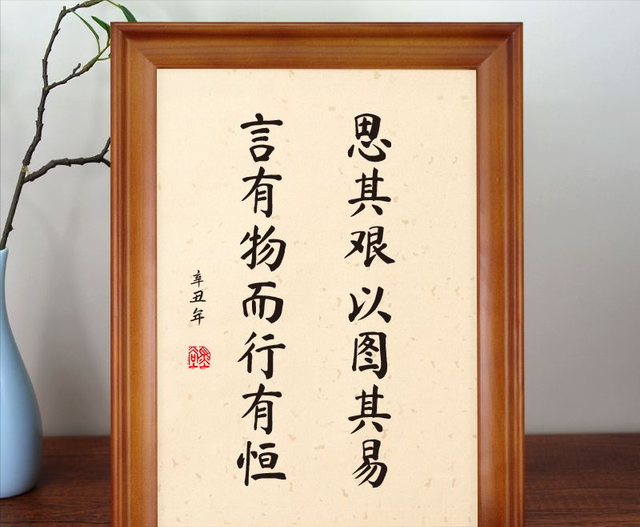 思其艰以图其易
言有物而行有恒
辛丑年